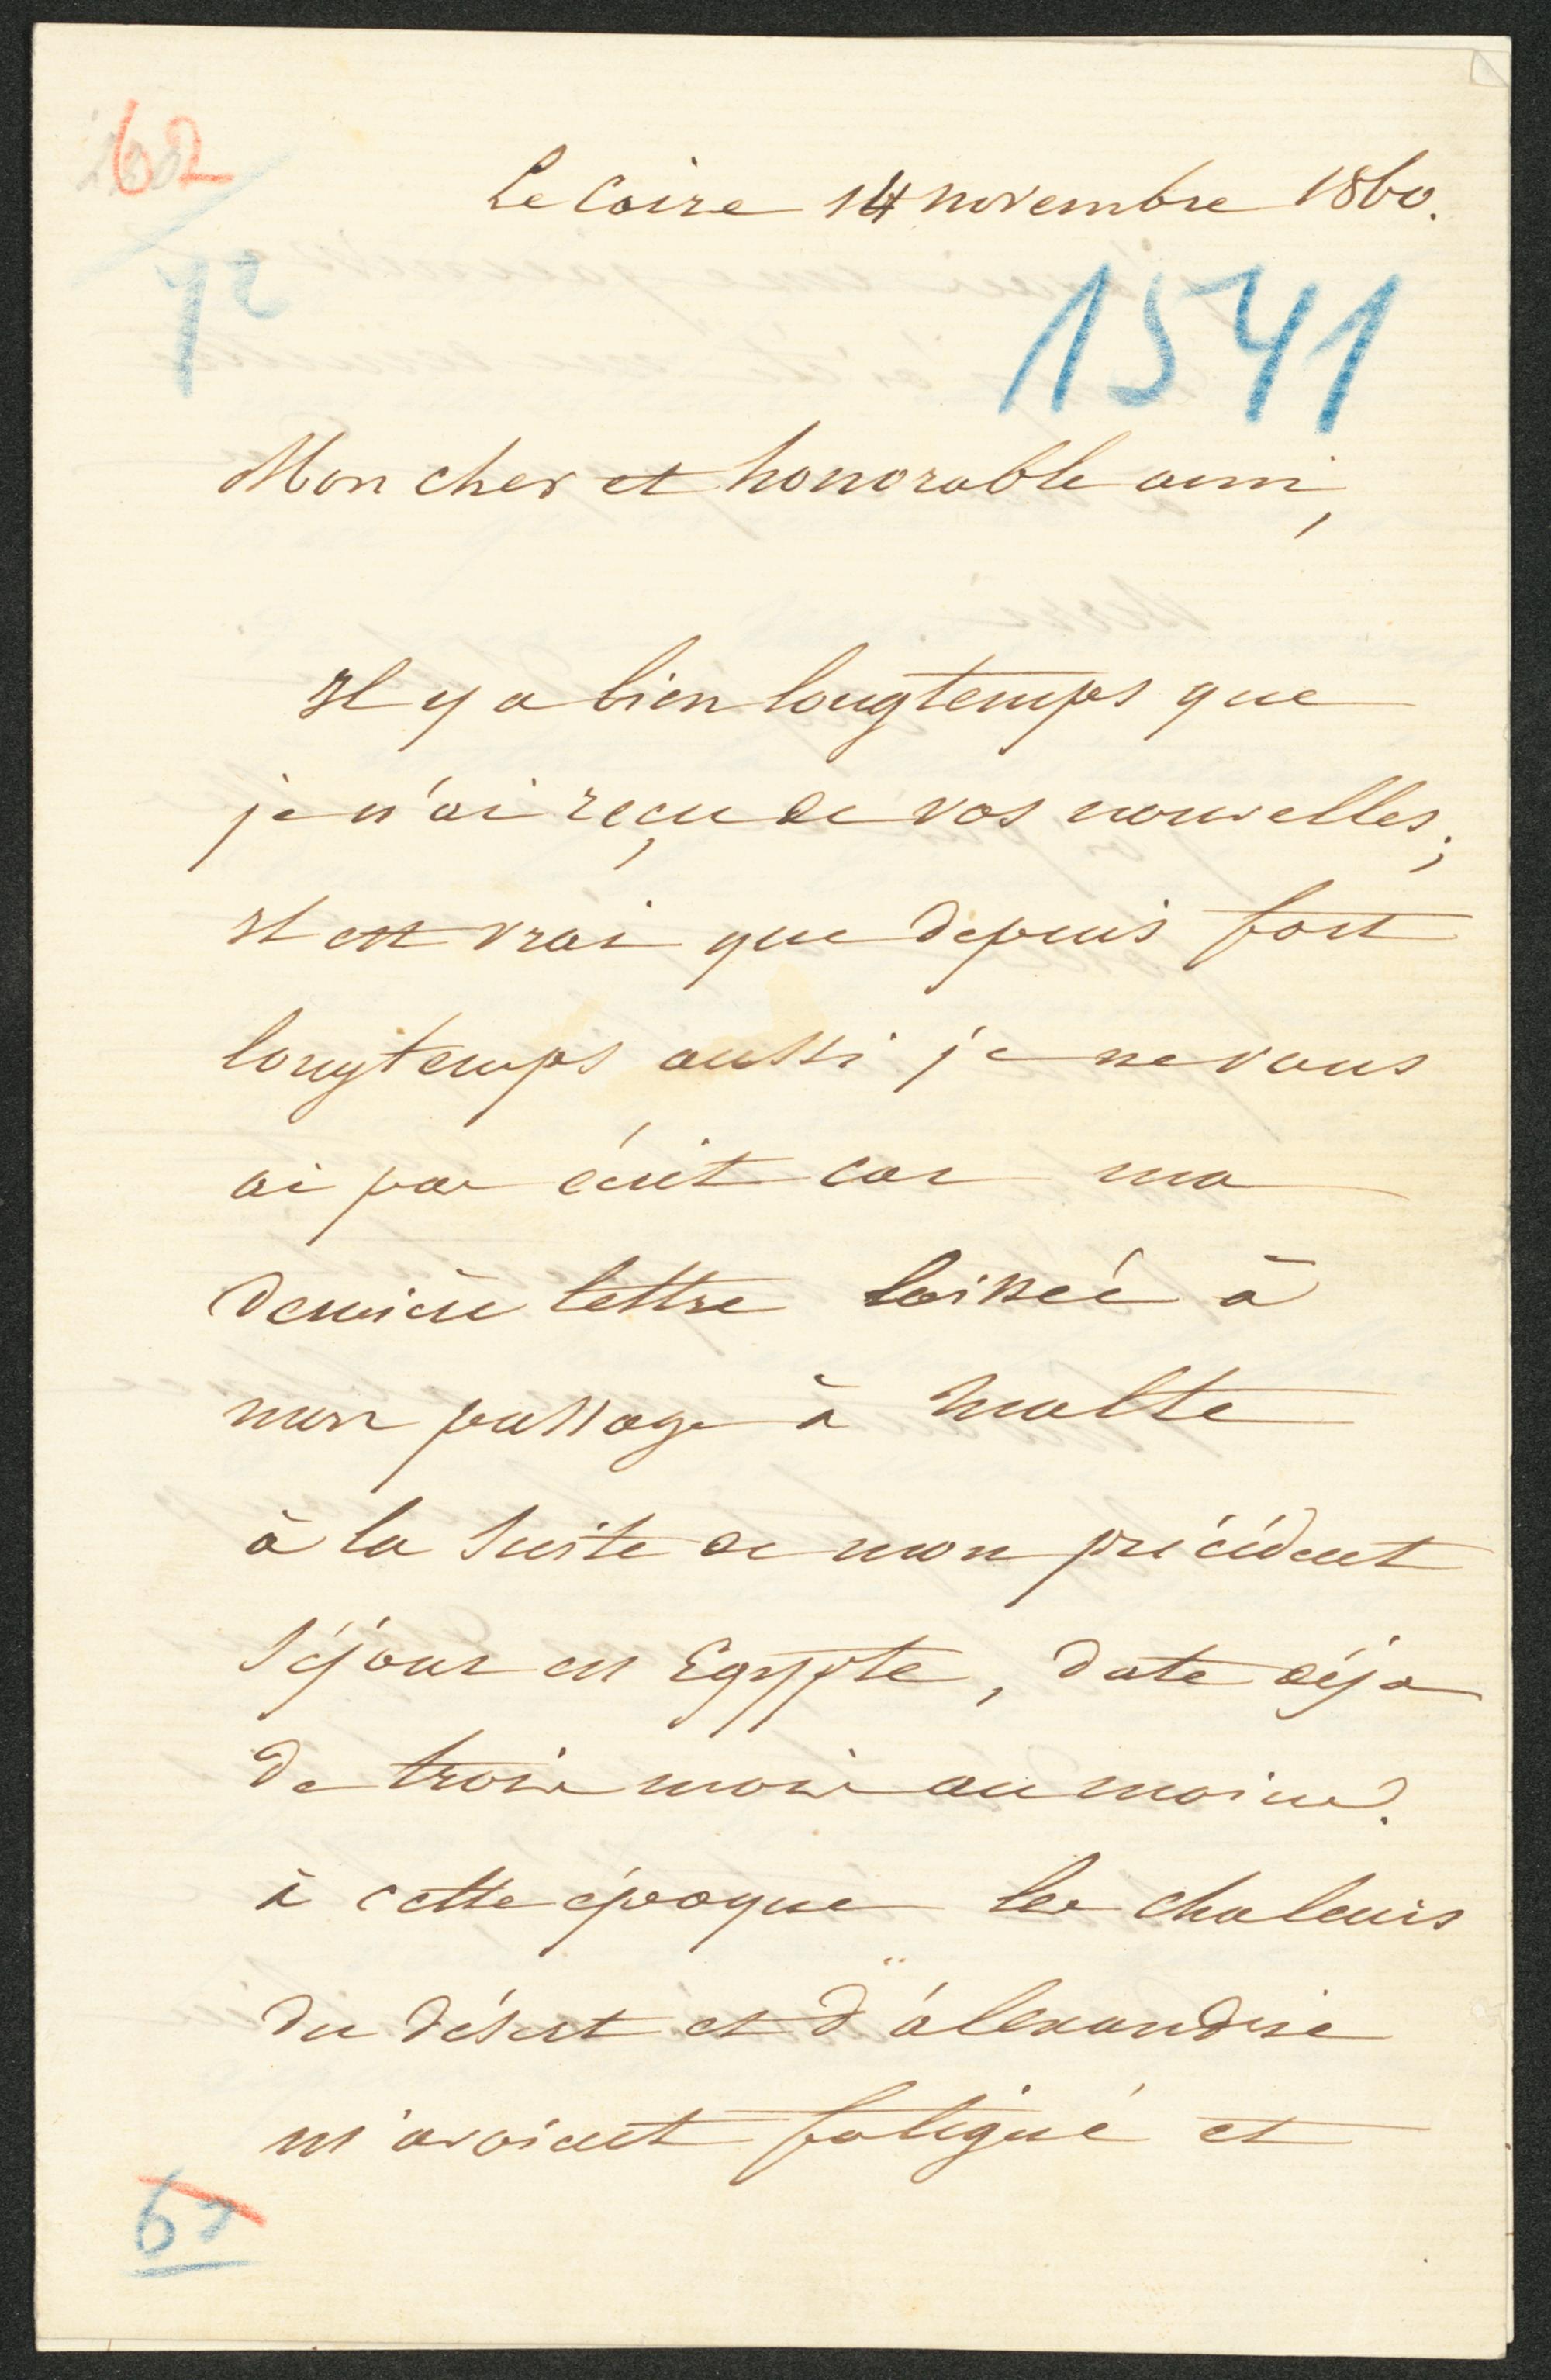 62
Le Caire 14 novembre 1860.
72
1541
Mon cher et honorable ami,
Il y a bien longtemps que
je n'ai reçu de vos nouvelles;
Il est vrai que depuis fort
longtemps aussi je ne vous
ai pas écrit car ma
dernière lettre laissée à
mon passage à Malte
à la suite de mon précédent
séjour en Egypte, date déja
de trois mois au moins.
à cette époque les chaleurs
du désert et d'alexandrie
m'avaient fatigué et